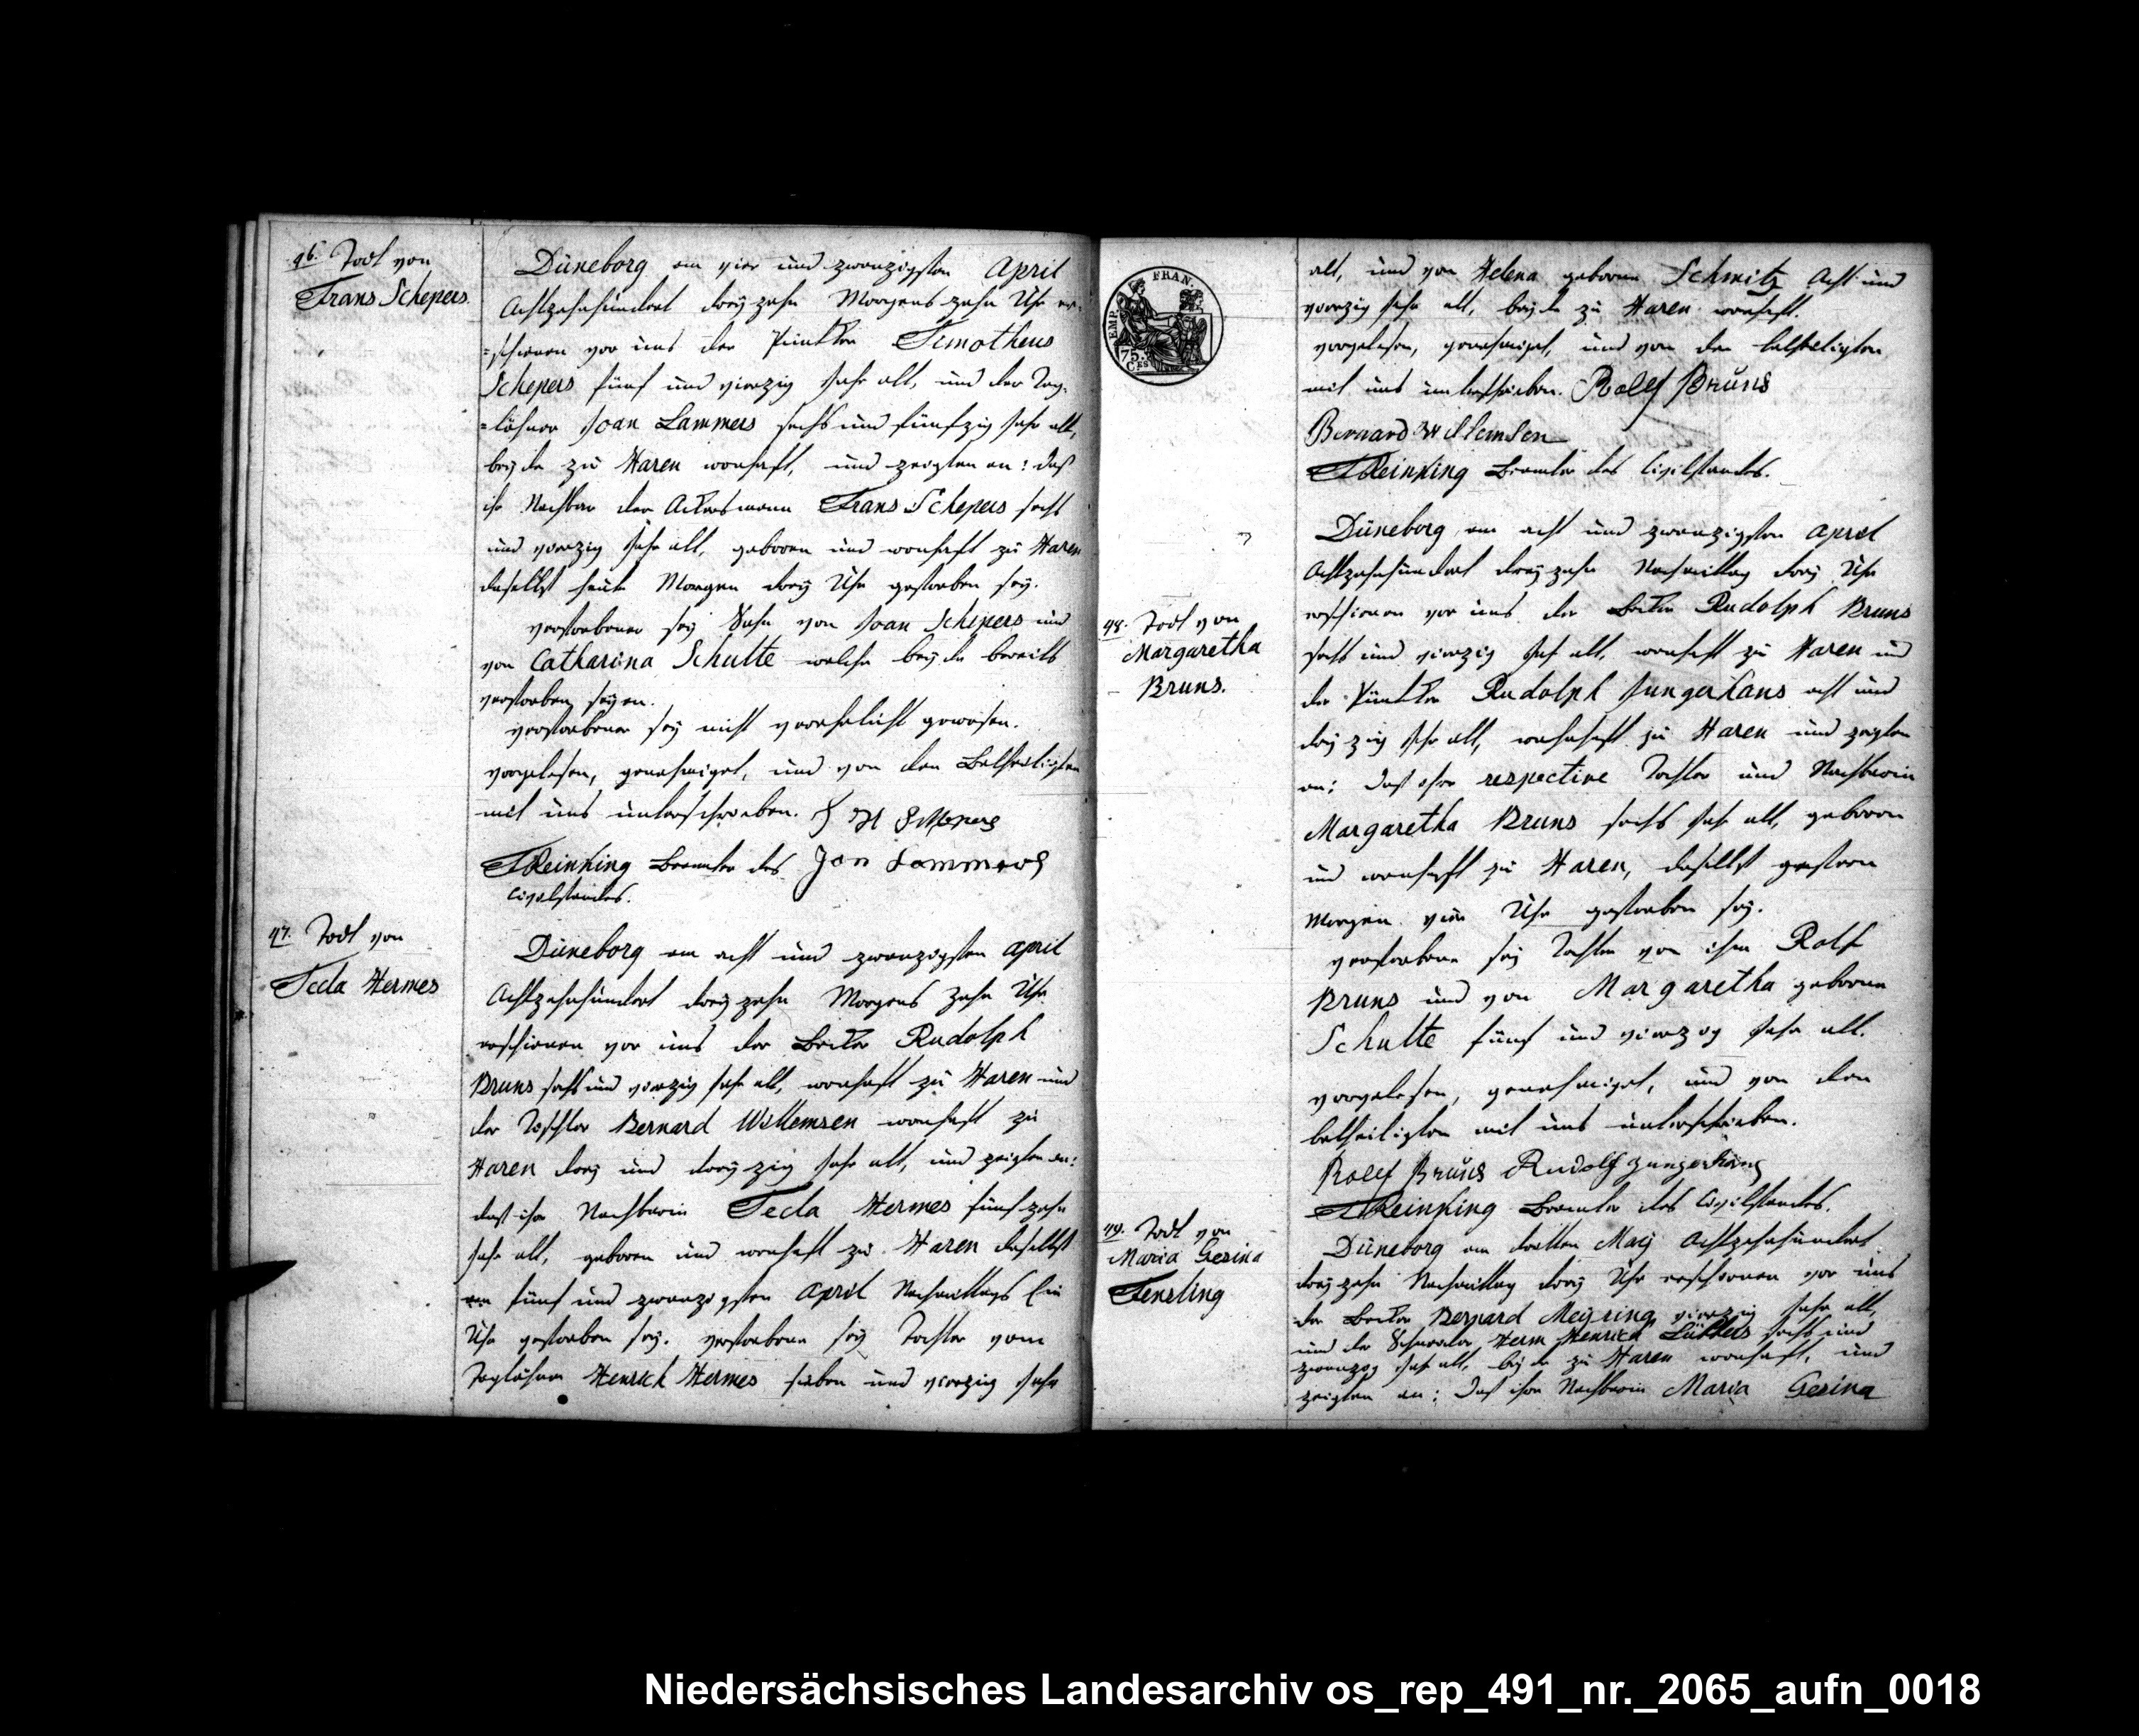 46. Todt von
Frans Schepers.
Düneborg am vier und zwanzigsten April
Achtzehnhundert dreÿzehn Morgens zehn Uhr er-
=schienen vor uns der Pünkter Timotheus
Schepers fünf und vierzig Jahr alt, und der Tag-
=löhner Joan Lammers sechs und fünfzig Jahr alt,
beÿde zu Haren wonhaft, und zeigten an: daß
ihr Nachbar der Ackersmann Frans Schepers sechs
und vierzig Jahr alt, geboren und wonhaft zu Haren
daselbst heute Morgen dreÿ Uhr gestorben seÿ.
verstorbener seÿ Sohn von Joan Schepers und
von Catharina Schulte welche beÿde bereits
verstorben seÿen.
verstorbener seÿ nicht verehelicht gewesen.
vorgelesen, genehmiget, und von den Betheiligten
mit uns unterschrieben. Schepers
Reinking Beamter des Jan Lammers
Civilstandes.
47. Todt von
Tecla Hermes
Düneborg am acht und zwanzigsten April
Achtzehnhundert dreÿzehn Morgens zehn Uhr
erschienen vor uns der Becker Rudolph
Bruns sechs und vierzig Jahr alt, wonhaft zu Haren und
der Tischler Bernard Willemsen wonhaft zu
Haren dreÿ und dreÿzig Jahr alt, und zeigten an:
daß ihre Nachbarin Tecla Hermes fünfzehn
Jahr alt, geboren und wonhaft zu Haren daselbst
am fünf und zwanzigsten April Nachmittags Ein
Uhr gestorben seÿ. verstorbene seÿ Tochter vom
Taglöhner Henrich Hermes sieben und vierzig Jahr
EMP. FRAN.
75.
CES
alt, und von Helena geborne Schmitz Acht und
vierzig Jahr alt, beÿde zu Haren wonhaft.
vorgelesen, genehmiget, und von den betheiligten
mit uns unterschrieben. Rolef Bruns
Bernard Willemsen
Reinking Beamter des Civilstandes.
48. Todt von
Margaretha
Bruns.
Düneborg am acht und zwanzigsten April
Achtzehnhundert dreÿzehn Nachmittag dreÿ Uhr
erschienen vor uns der Becker Rudolph Bruns
sechs und vierzig Jahr alt, wonhaft zu Haren und
der Pünkter Rudolph Jungerhans acht und
dreÿzig Jahr alt, wohnhaft zu Haren und zeigten
an: daß ihre respective Tochter und Nachbarin
Margaretha Bruns sechs Jahr alt, geboren
und wonhaft zu Haren, daselbst gestern
Morgen vier Uhr gestorben seÿ.
verstorbene seÿ Tochter von ihm Rolf
Bruns und von Margaretha geborne
Schulte fünf und vierzig Jahr alt.
vorgelesen, genehmiget, und von den
betheiligten mit uns unterschrieben.
Rolef Bruns Rudolf Jungerhans
Reinking Beamter des Civilstandes.
49. Todt von
Maria Gesina
Tensling
Düneborg am dritten Maÿ Achtzehnhundert
dreÿzehn Nachmittag dreÿ Uhr erschienen vor uns
der Becker Bernard Meÿring vierzig Jahr alt,
und der Schneider Herm Henrich Lübbers sechs und
zwanzig Jahr alt, beÿde zu Haren wonhaft, und
zeigten an: daß ihre Nachbarin Maria Gesina
Niedersächsisches Landesarchiv os_rep_491_nr._2065_aufn_0018